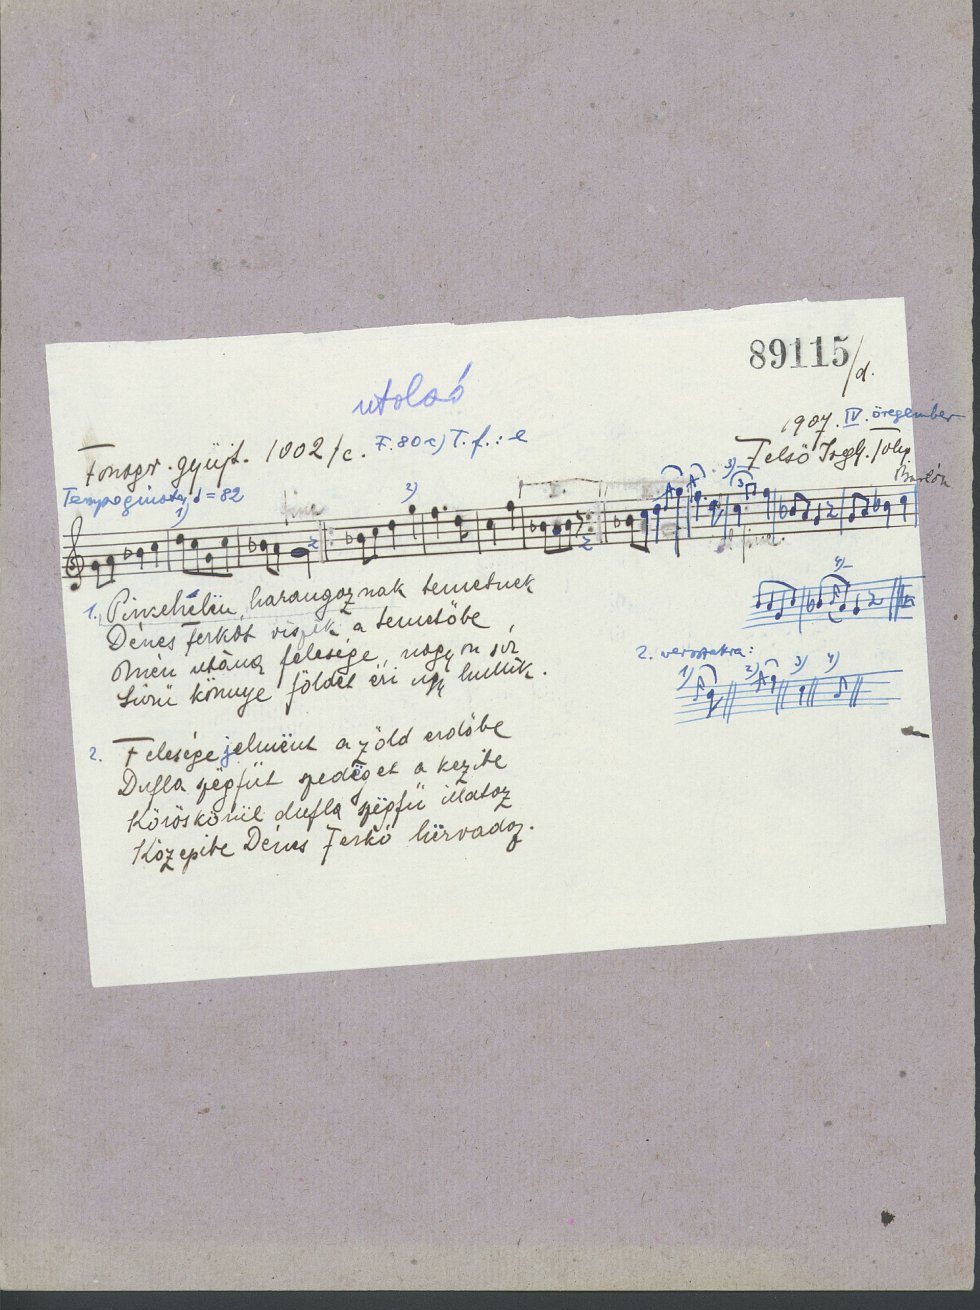 89115/d.
utolsó
Fonogr. gyüjt. 1002/c. F. 80 c) T. f.: e
1907. IV. öregember
Felső Iregh. Tolna
Bartók
Tempo giusto, ♩=82
1) 2) 3)
fine
4)
1. Pinzehelën harangoznak temetnek
Dénes Ferkót viszik a temetőbe
Mén utána felesége, nagyon sír
Sürü könnye földet éri ugy hullik.
2. versszakra:
1) 2) 3) 4)
2. Felesége jelmënt a zöld erdőbe
Dufla szëgfüt szedëget a kezibe
Köröskörül dufla szëgfü illatoz
Közepibe Dénes Ferkó hërvadoz.